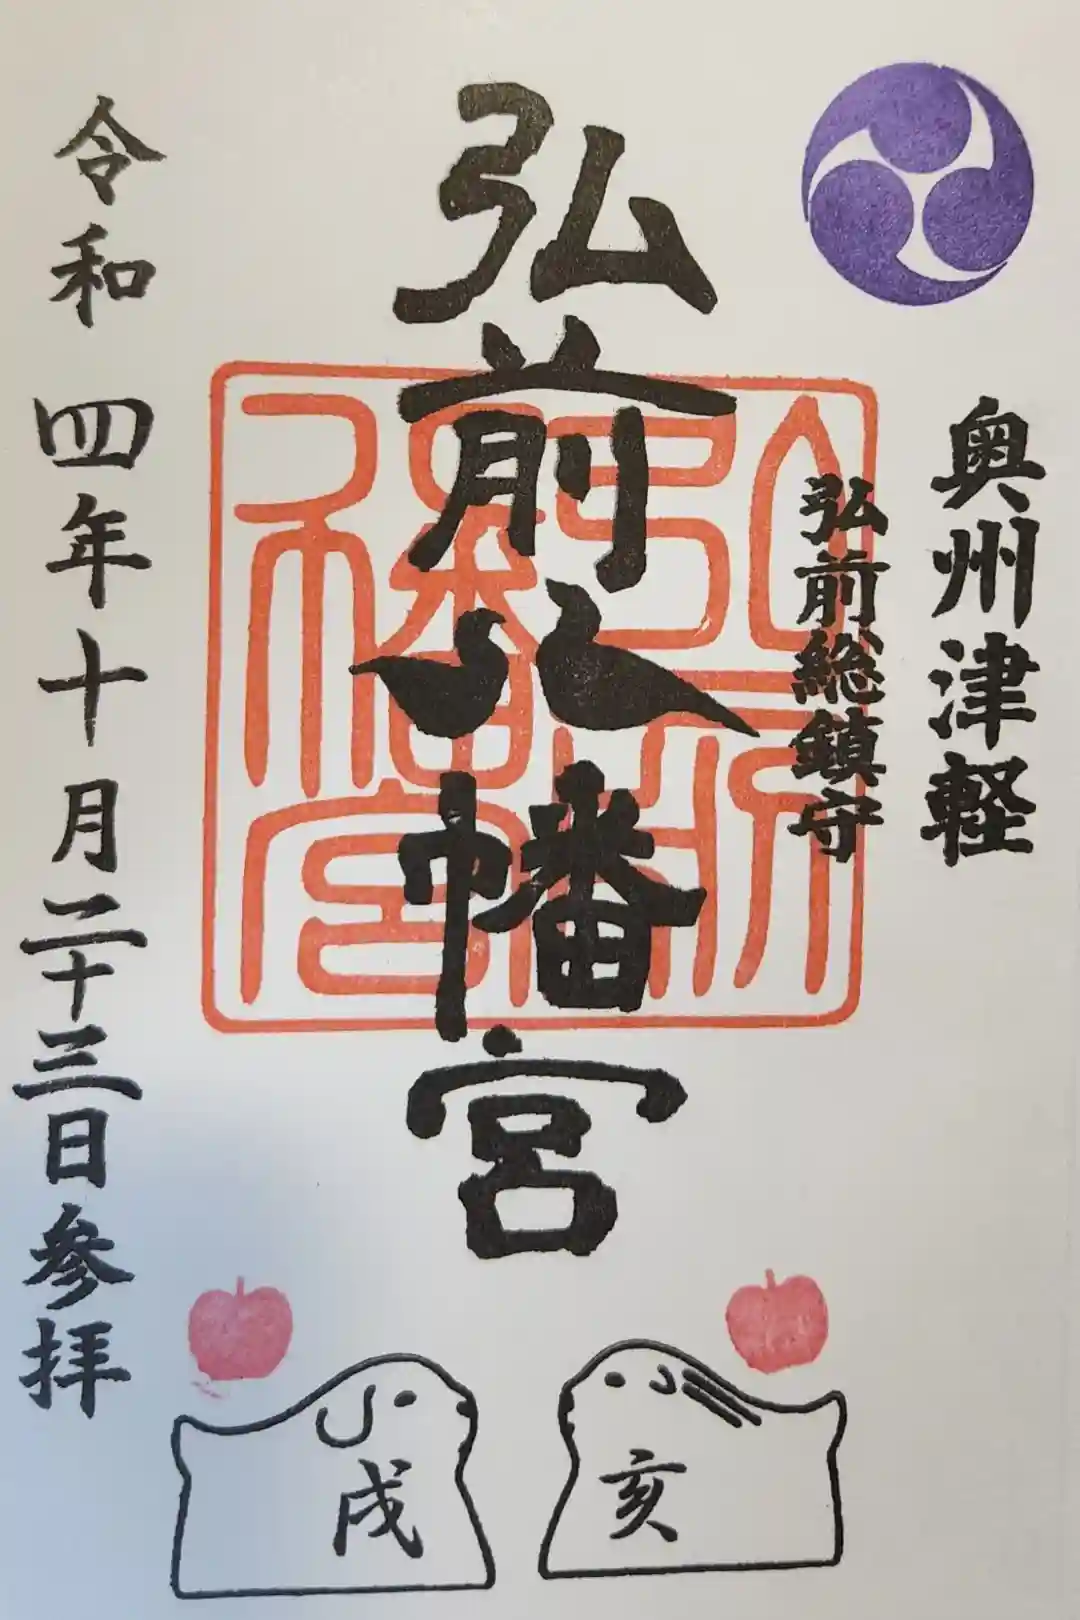 奥州津軽
弘前総鎮守
弘前八幡宮
令和四年十月二十三日参拝
亥
戌